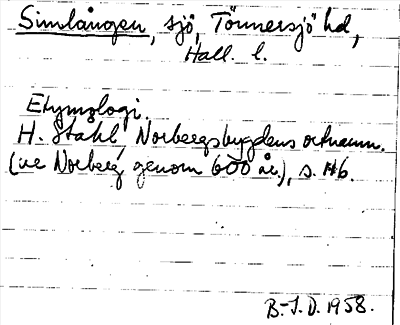 Simlången, sjö, Tönnersjö hd,
Hall. l.
Etymologi.
H. Ståhl, Norbergsbygdens ortnamn.
(ur Norberg genom 600 år), s.
B.-I.D. 1958.